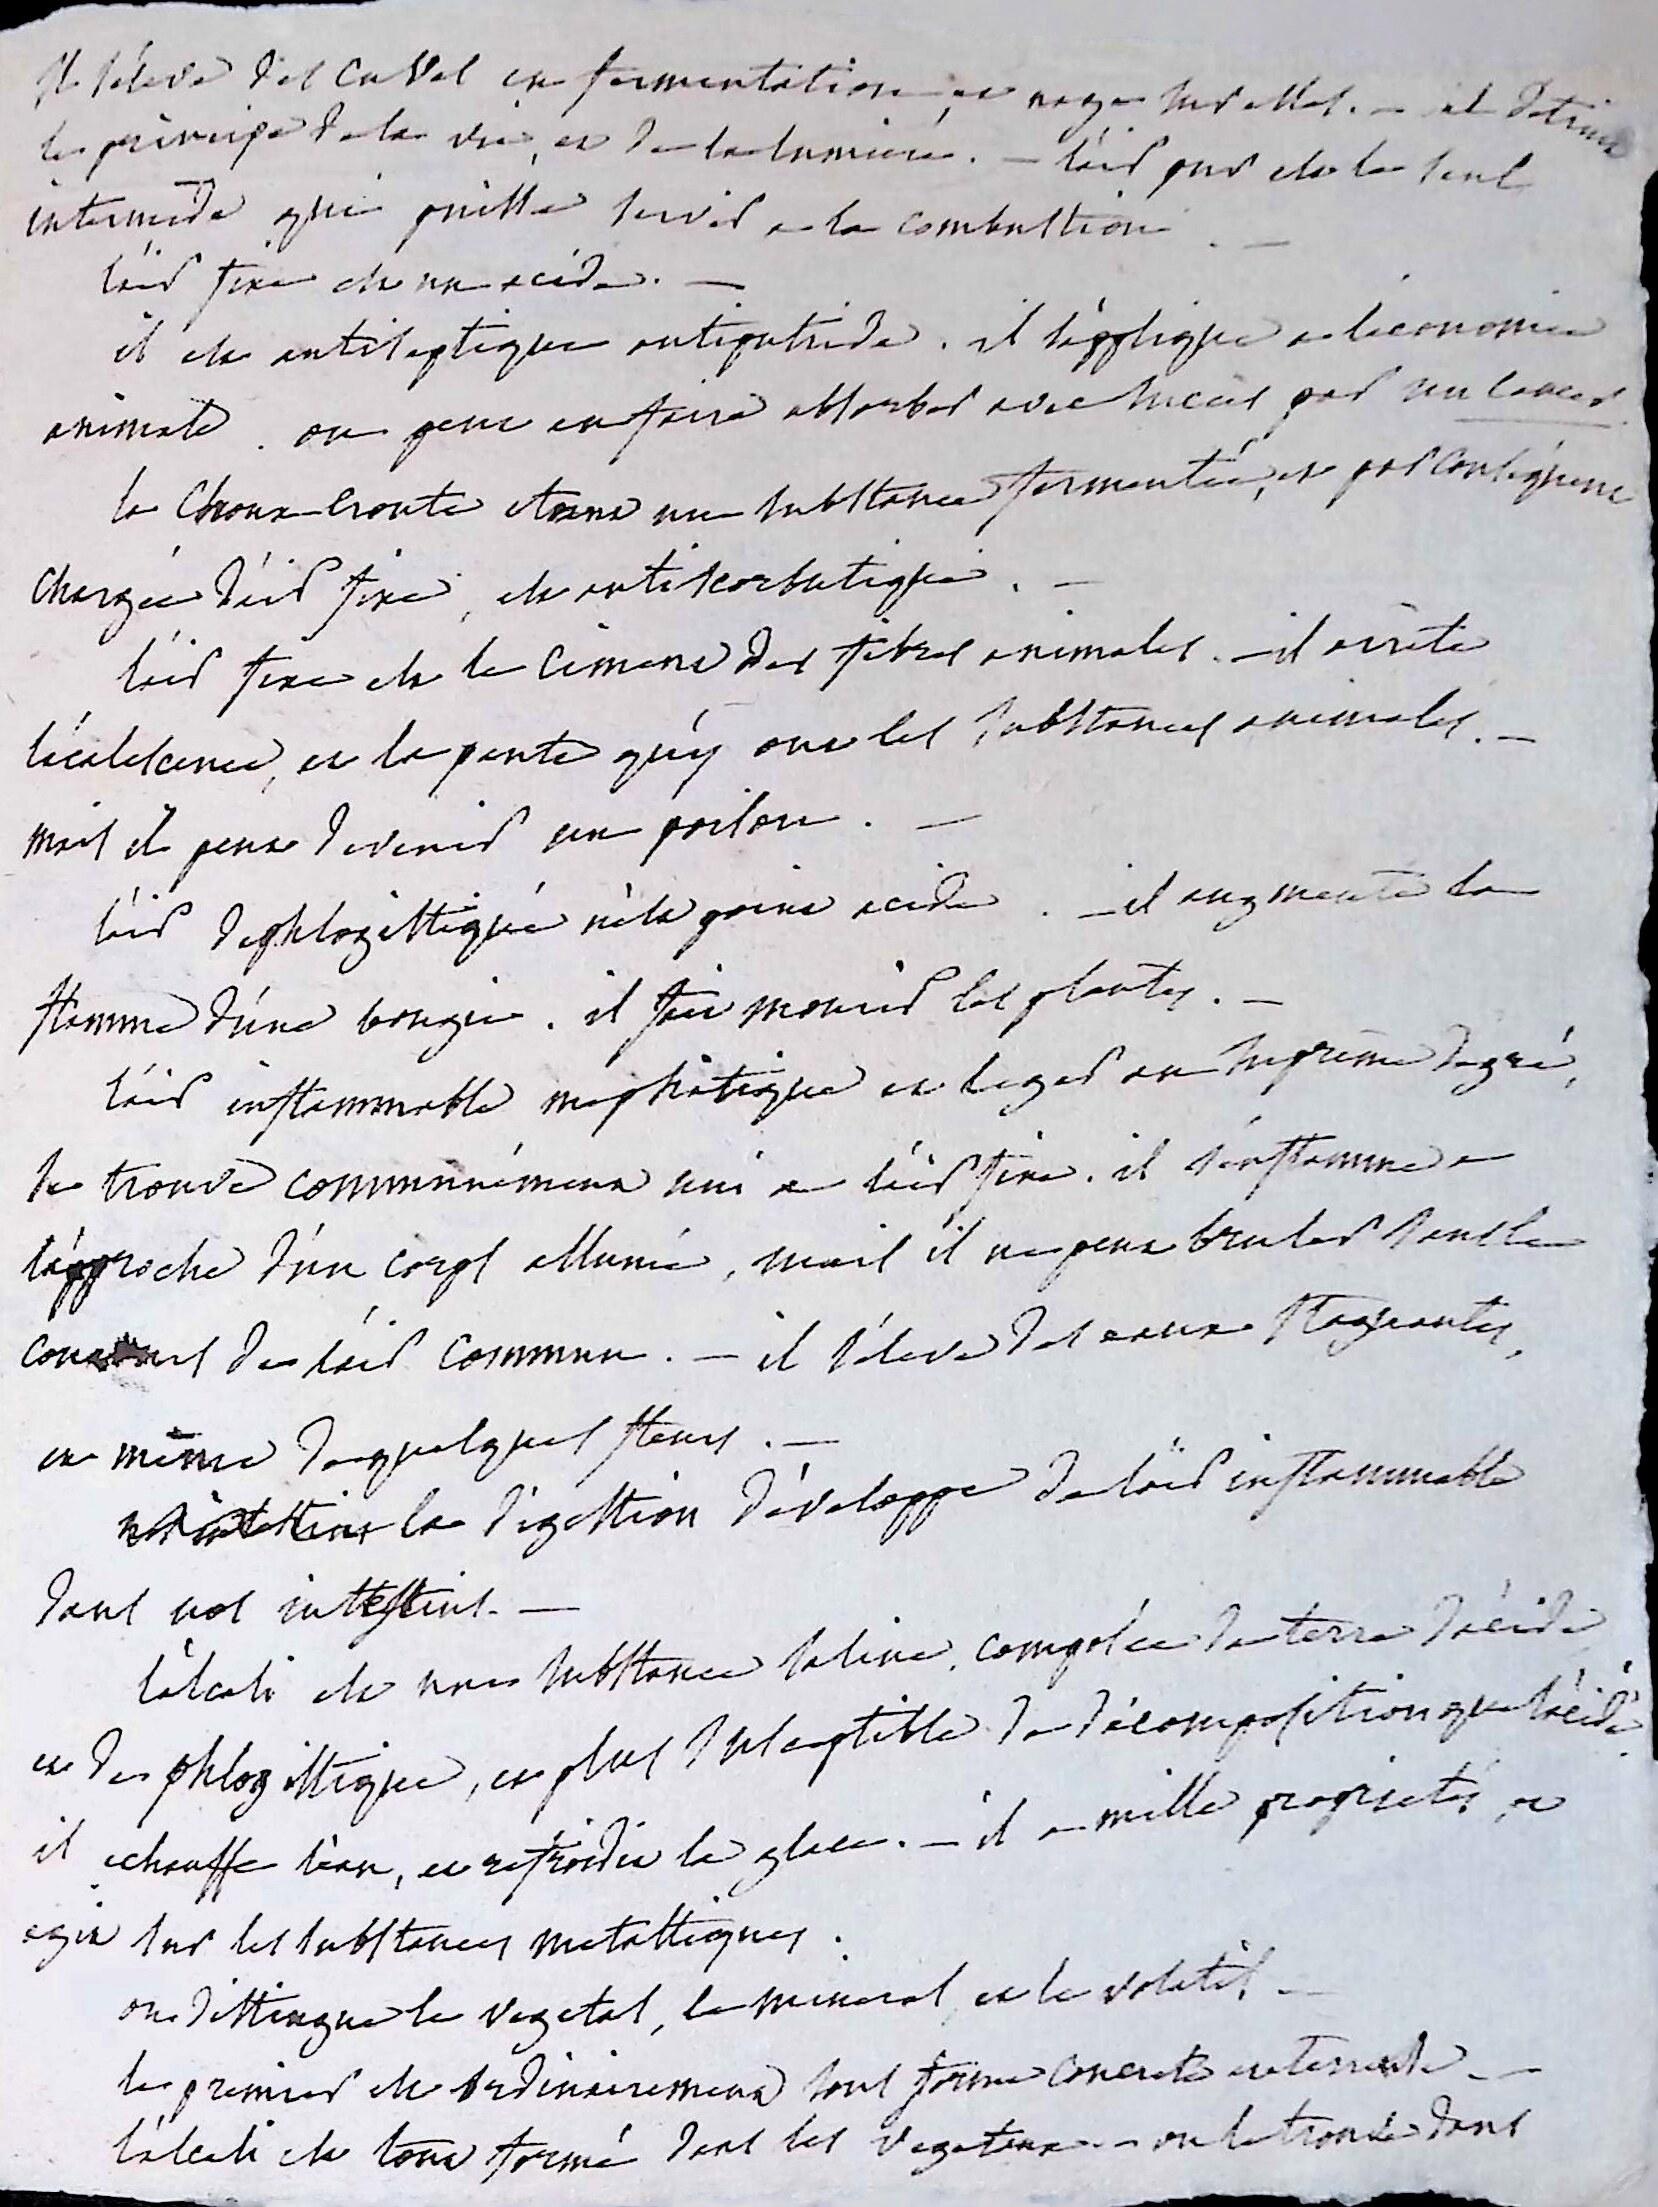 il s'éleve des cuves en fermentation, et nage sur elles. – il detruit
le principe de la vie, et de la lumiere. – l'air pur est le seul
intermede qui puisse servir a la combustion. –
l'air fixe est un acide. –
il est antiseptique antiputride. il s'applique a l'économie
animale. on peut en faire absorber avec succès par un cancer.
la Choux-croute etant une substance fermentée, et par conséquent
chargée d'air fixe, est antiscorbutique. –
l'air fixe est le ciment des fibres animales. – il arrête
l'écalescence, et la pente qu'y ont les substances animales. –
mais il peut devenir un poison. –
l'air dephlogistiqué n'est point acide. – il augmente la
flamme d'une bougie. il fait mourir les plantes. –
l'air inflammable mephitique et leger au suprême degré,
se trouve communément uni a l'air fixe. il s'enflamme a
l'approche d'un corps allumé, mais il ne peut bruler sans le
concours de l'air commun. – il s'éleve des eaux stagnantes,
et même de quelques fleurs. –
nos intestins la digestion développe de l'air inflammable
dans nos intestins. –
l'alcali est une substance saline, composée de terre d'acide
et de phlogistique, et plus susceptible de décomposition que l'acide.
il echauffe l'eau, et refroidit la glace. – il a mille proprietés, et
agit sur les substances metalliques.
on distingue le vegetal, le mineral, et le volatil. –
le premier est ordinairement sous forme concrete et terreste. –
l'alcali est tout formé dans les vegetaux. – on le trouve dans